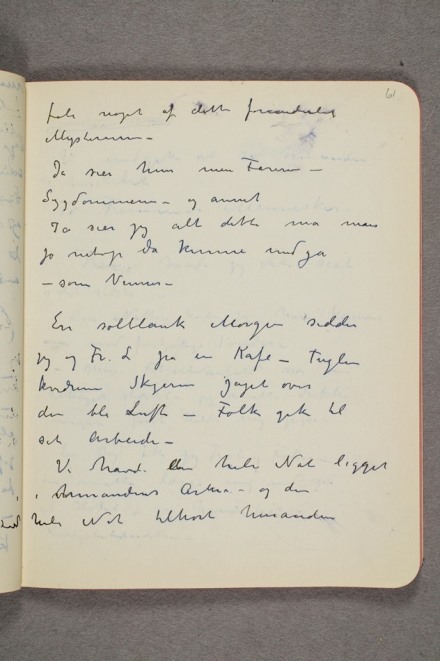 61
føle noget af dette forunderlige
Mysterium –
Ja sier hun men Faren –
Sygdommen – og annet
Ja sier jeg alt dette må man
jo netop da kunne undgå
– som Venner –
En solblank Morgen sidder
jeg og Fr. L på en Kafe – Fuglene
kvidrer Skyerne jaget over
den blå Luft – Folk gik til
sit Arbeide –
Vi havde den hele Nat ligget
i hinandens Arme – og den
hele Nat tilhørt hinanden